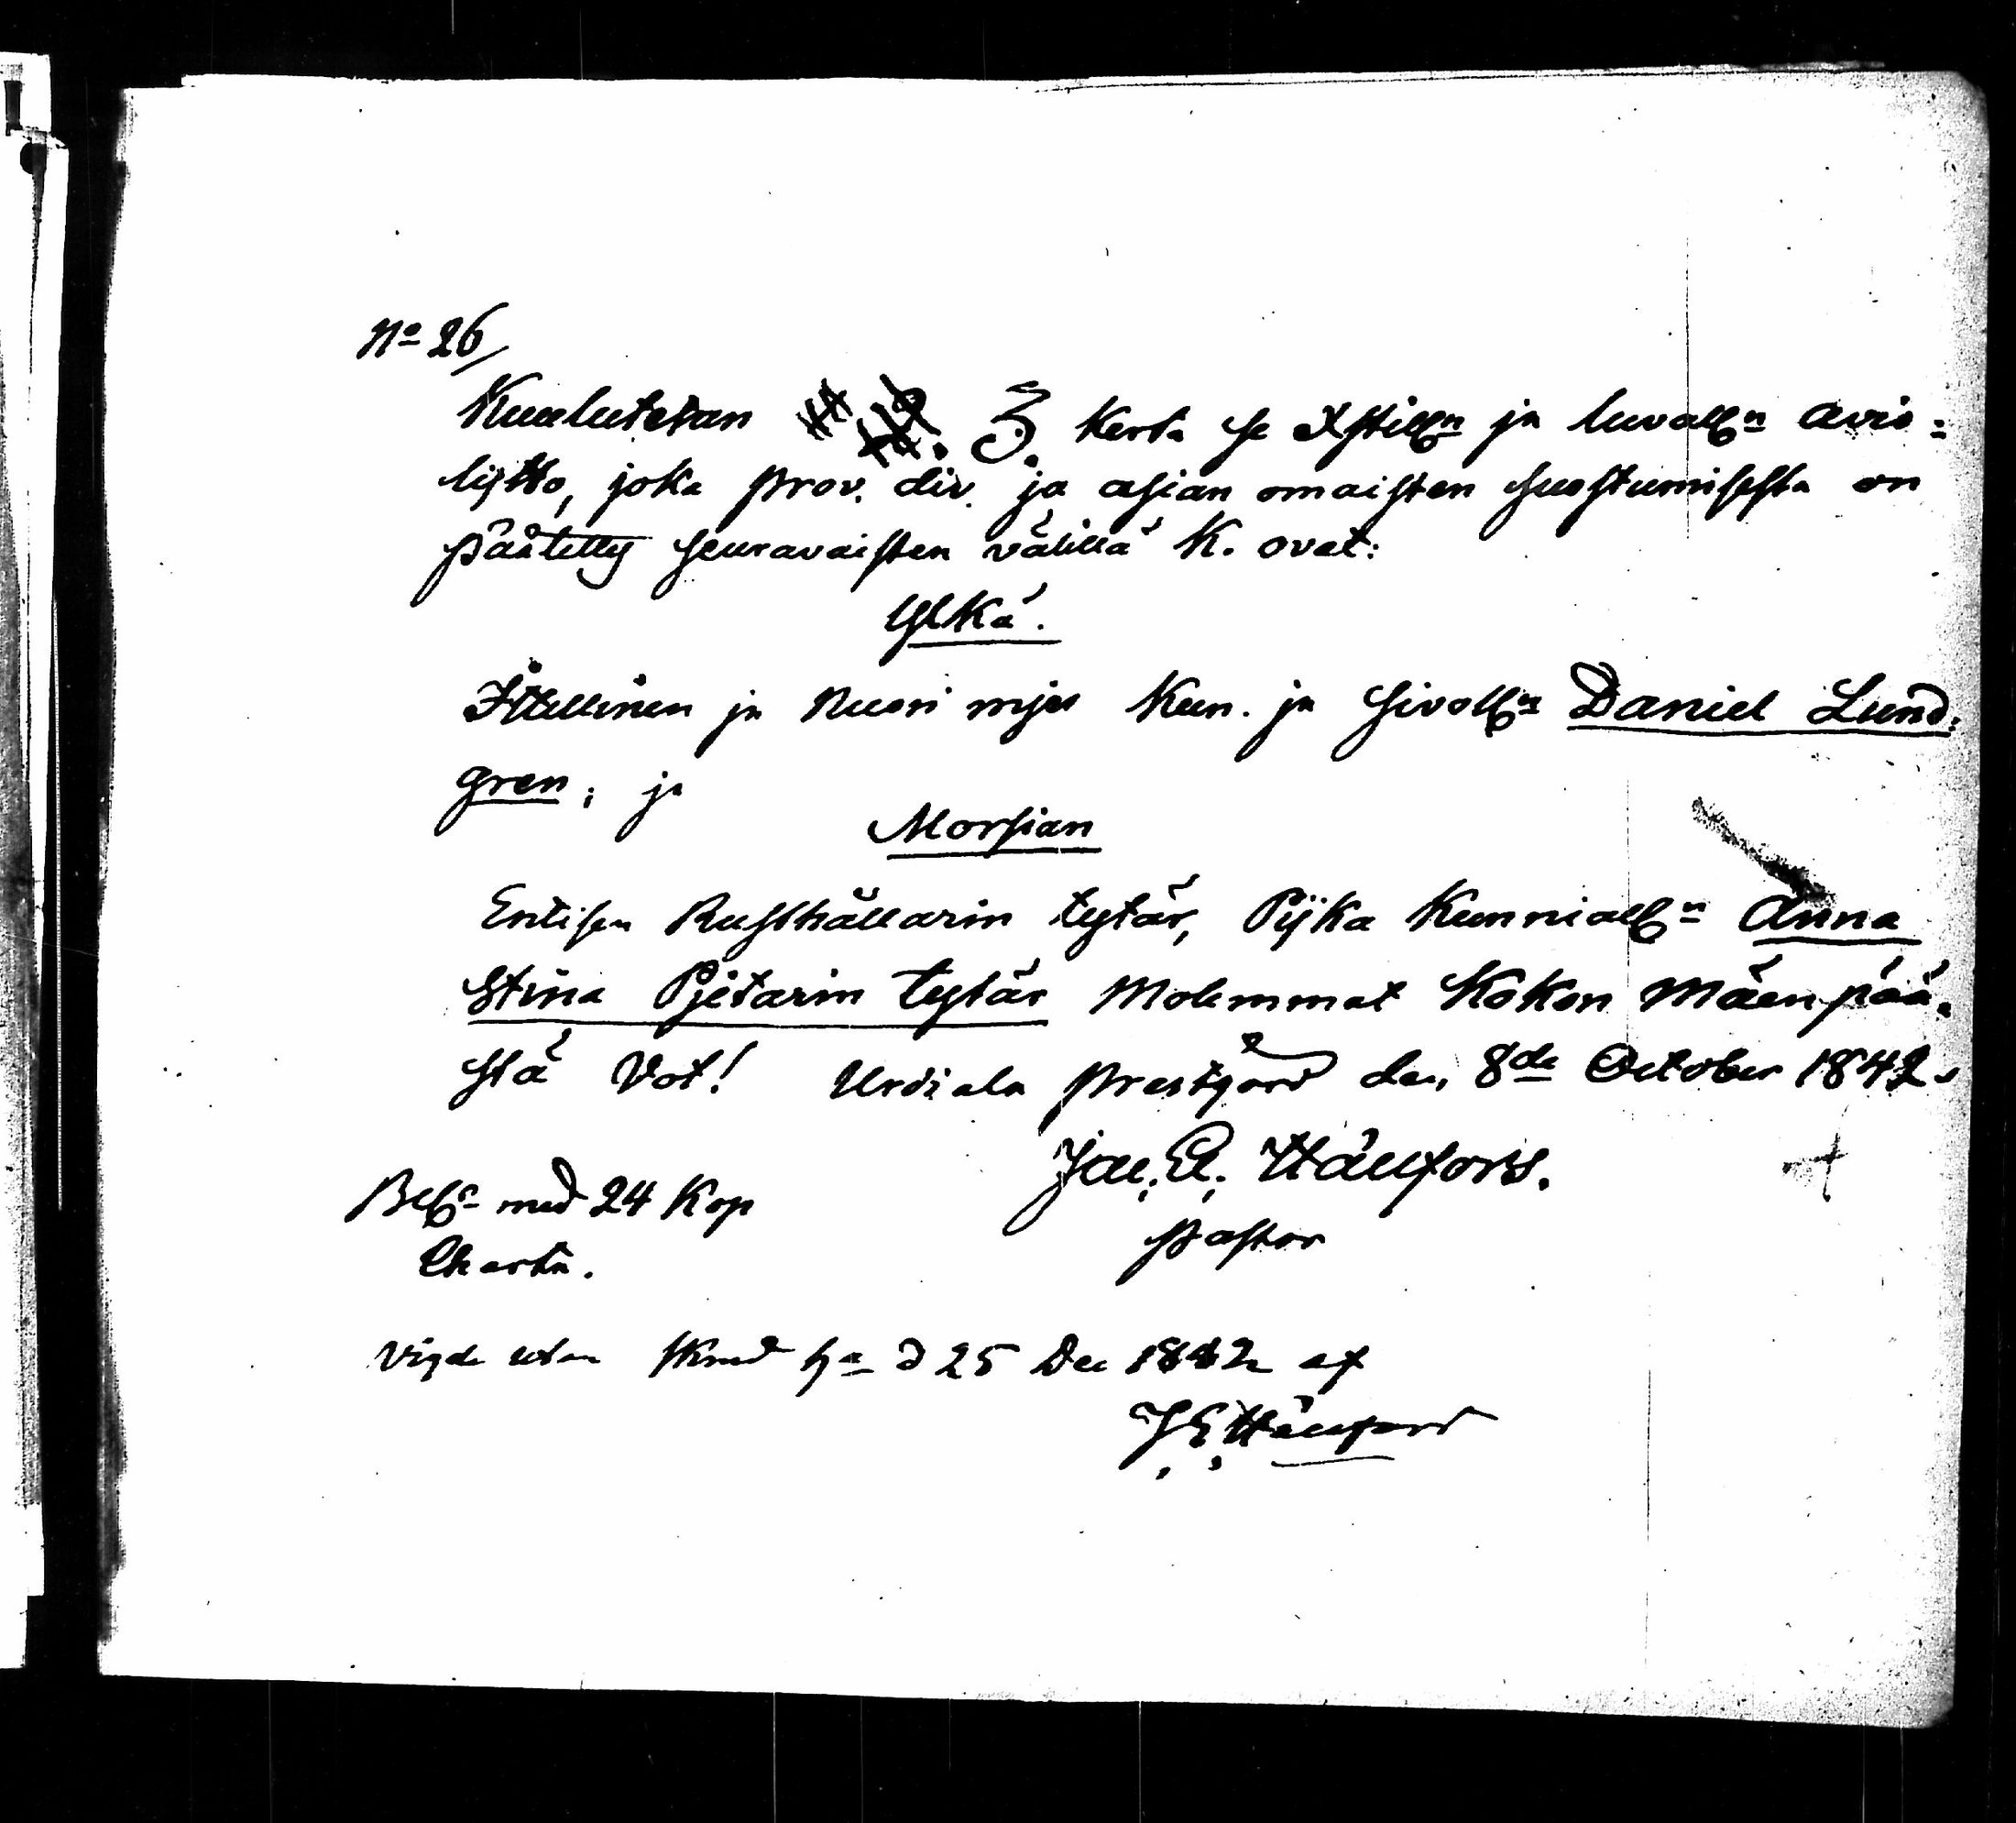 No 26/
Kuulutetan 3. Kerta se Xstilln ja luvalln avio=
lijtto, joka prov. div. ja asian omaisten suostumisesta on
päätetty seuravaisten välillä K. ovat:
Ylkä.
Itellinen ja Nuori mjes Kun. ja sivolln Daniel Lund=
gren; ja
Morsian
Entisen Rusthållarin tytär, Pijka Kunnialln Anna
Stina Pjetarin tytär Molemmat Kokon Mäenpää=
stä Vot! Urdiala Prestgård den 8de October 1842.
Jac. E. Hällfors.
Pastor
Beln med 24 Kop
Charta.
Vigde utan d 25 Dec 1842 af
J. E. Hällfors